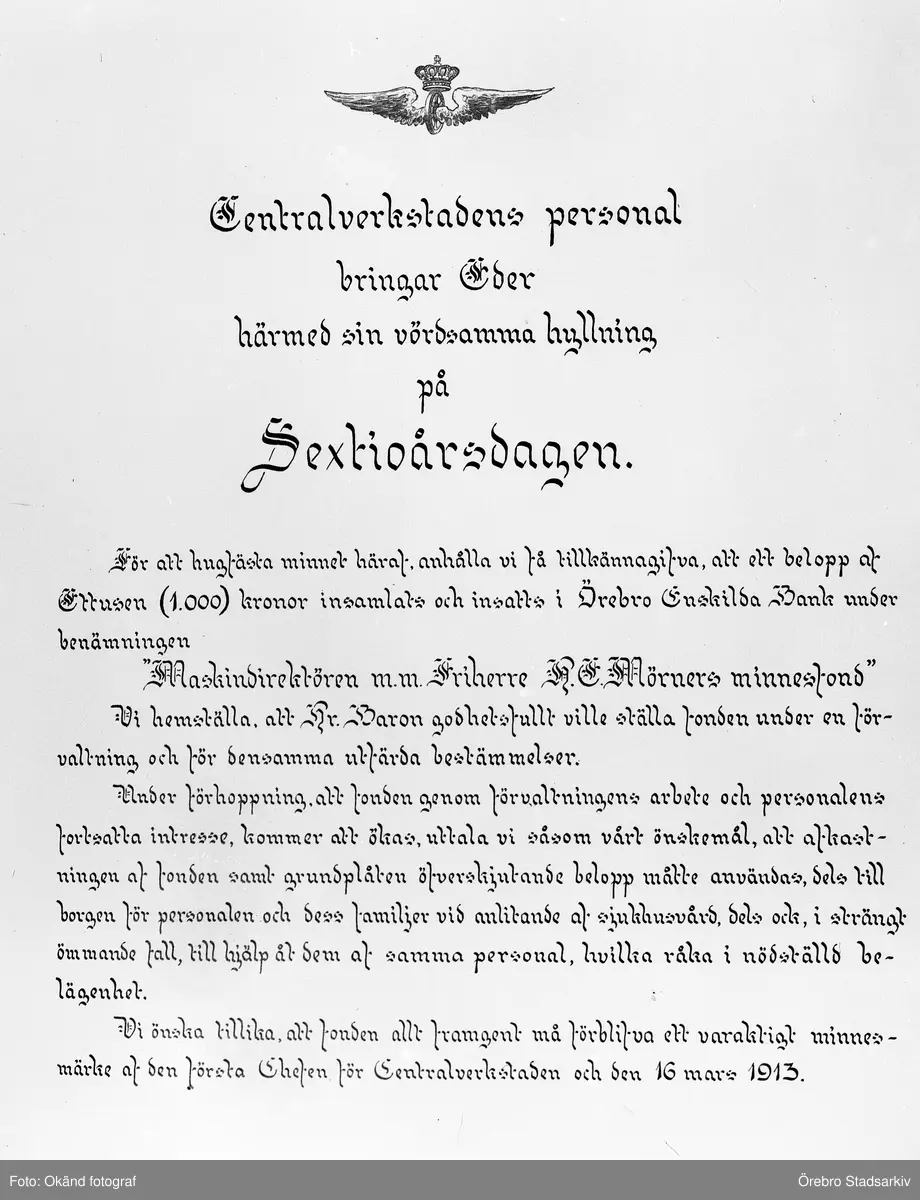 Centralverkstadens personal
bringar Eder
härmed sin vördsamma hyllning
på
Sextioårsdagen.
För att hugfästa minnet häraf, anhålla vi få tillkännagifva, att ett belopp af
Ettusen (1.000) kronor insamlats och insatts i Örebro Enskilda Bank under
benämningen
"Maskindirektören m.m. Friherre H. E. Mörners minnesfond"
Vi hemställa, att Hr. Baron godhetsfullt ville ställa fonden under en för-
valtning och för densamma utfärda bestämmelser.
Under förhoppning, att fonden genom förvaltningens arbete och personalens
fortsatta intresse, kommer att ökas, uttala vi såsom vårt önskemål, att afkast-
ningen af fonden samt grundplåten öfverskjutande belopp måtte användas, dels till
borgen för personalen och dess familjer vid anlitande af sjukhusvård, dels ock, i strängt
ömmande fall, till hjälp åt dem af samma personal, hvilka råka i nödställd be-
lägenhet.
Vi önska tillika, att fonden allt framgent må förblifva ett varaktigt minnes-
märke af den första Chefen för Centralverkstaden och den 16 mars 1913.
Foto: Okänd fotograf
Örebro Stadsarkiv